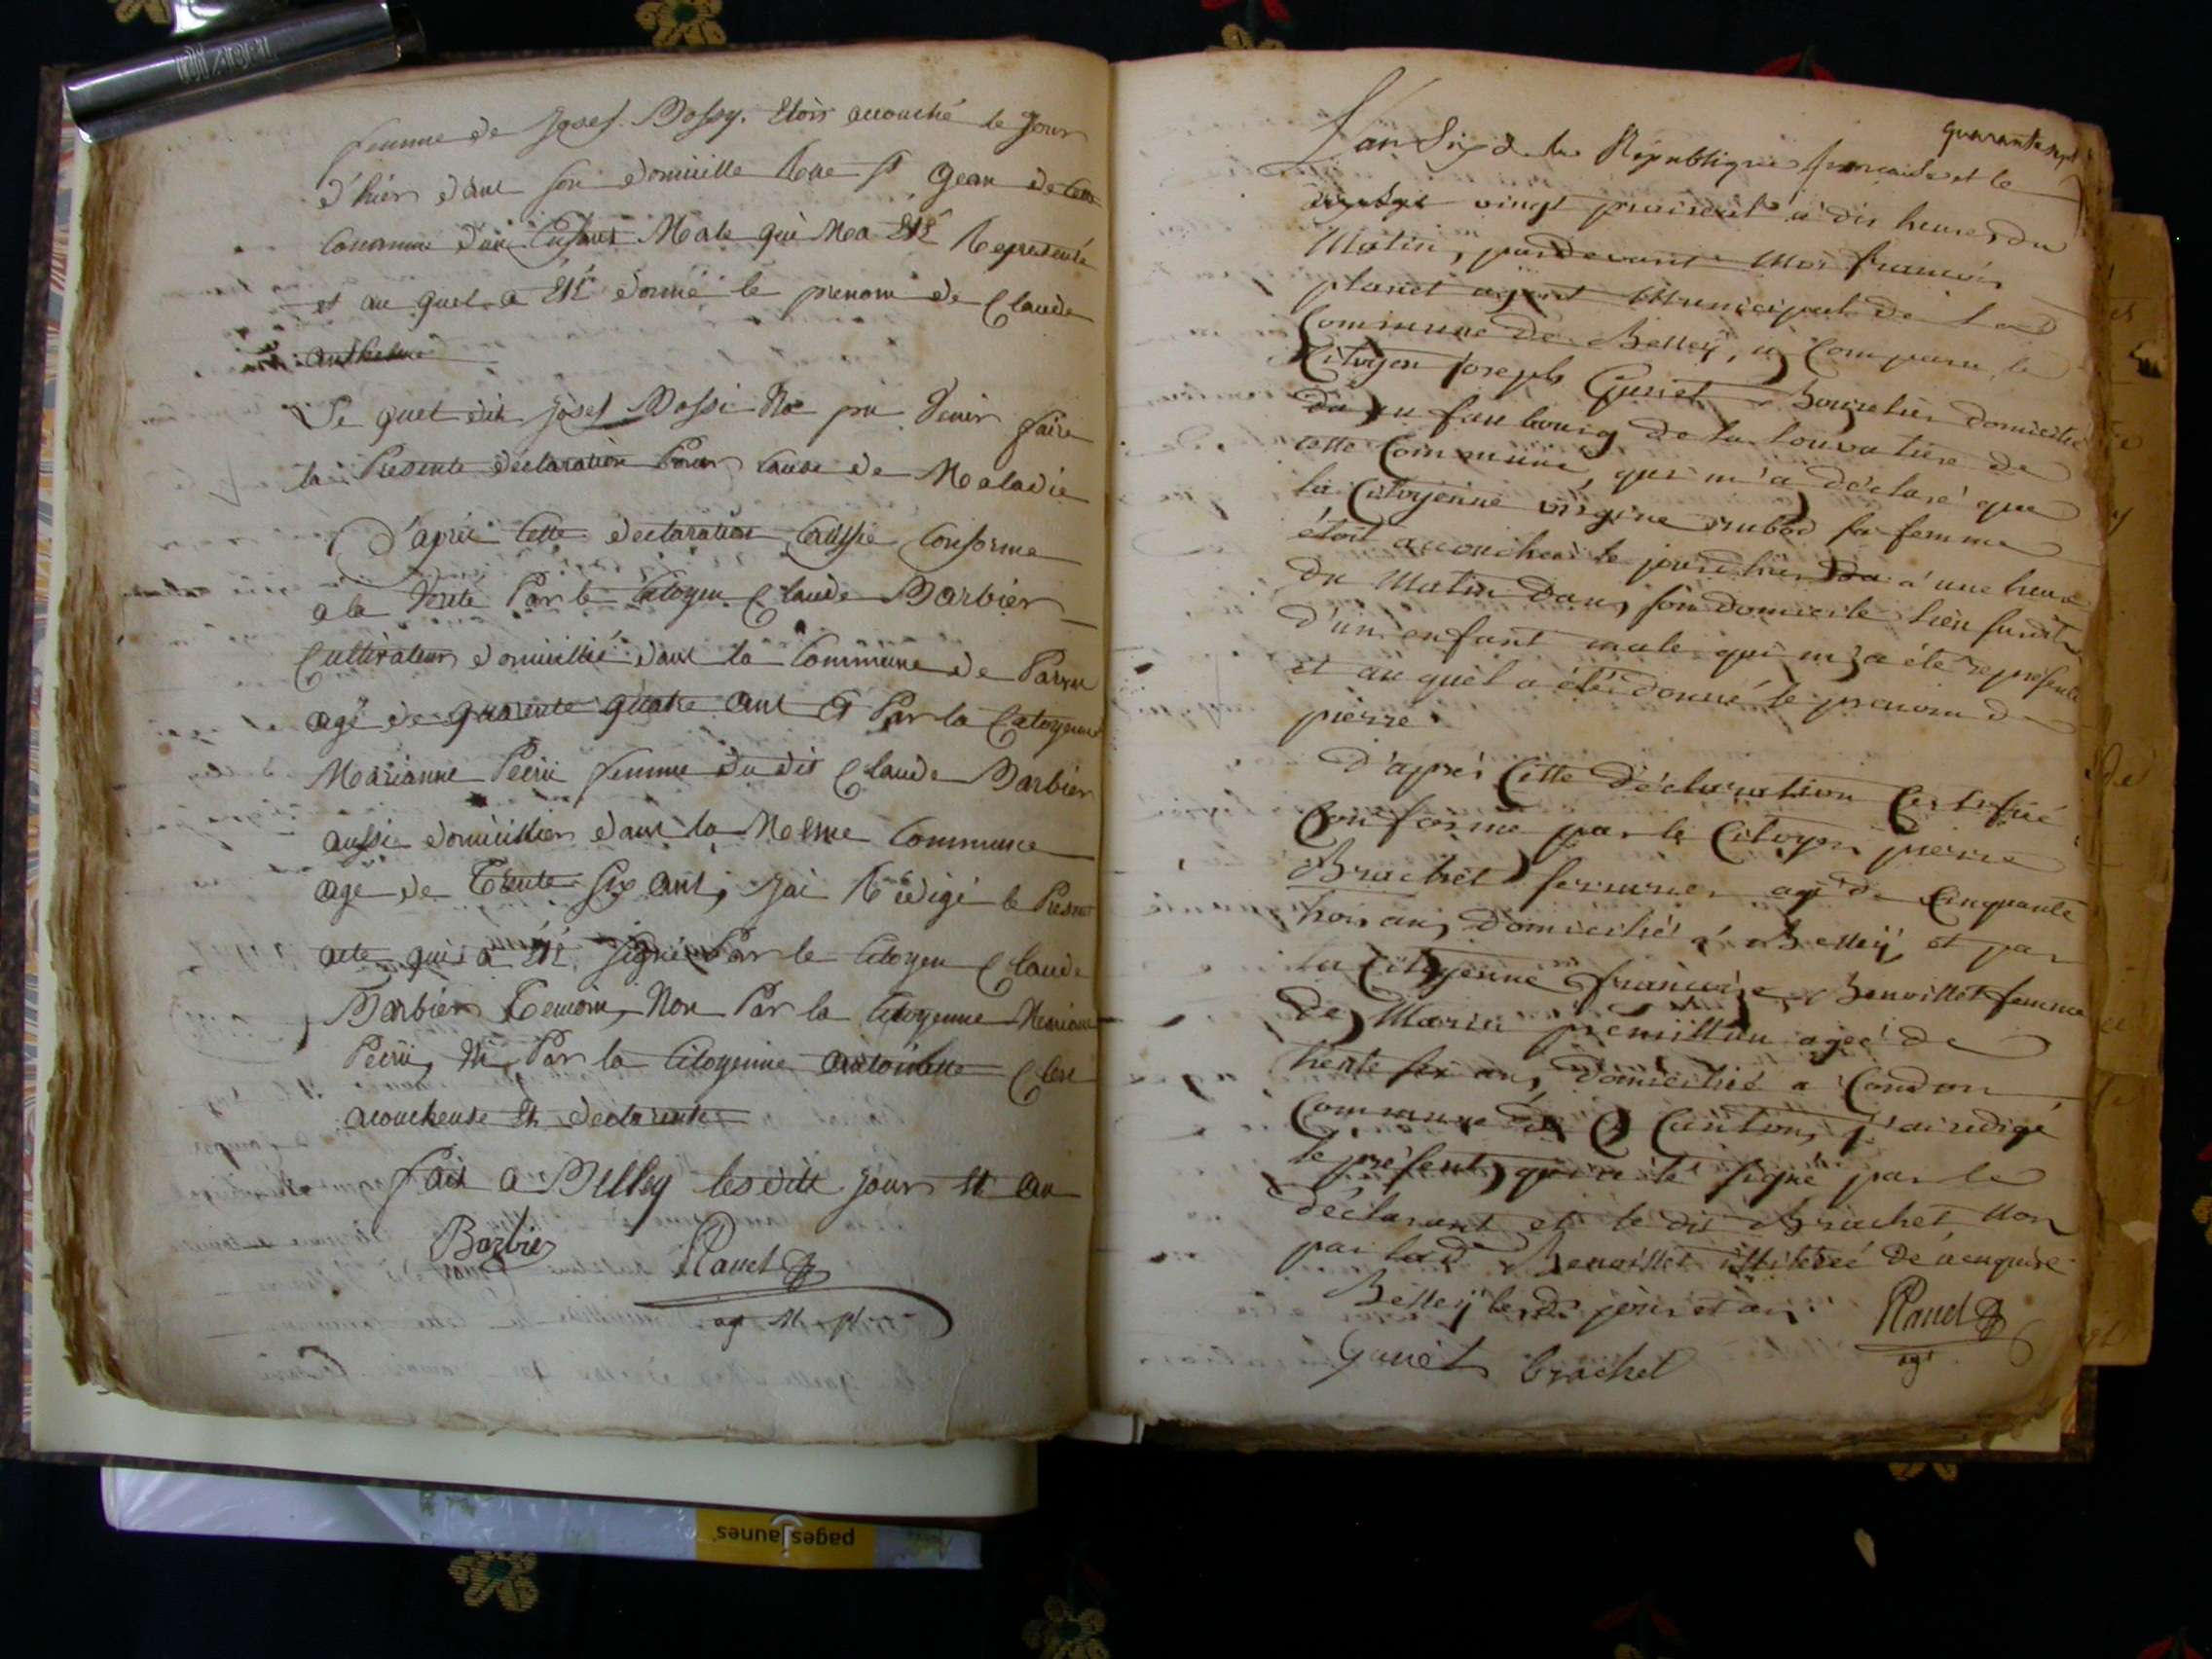 femme de Josef Bossy. Etois acouché le Jour
d'hier dans son domicille Rue St Gean de cette
Commune d'un Enfant Male qui Ma Eté Representé
et au quel a Eté donné le prenom de Claude
anthelme
Le quel dit Josef Bossi Na pu Venir faire
la Presente déclaration Pour Cause de Maladie
D'aprés Cette declaration Conforme
a la Verité Par le Citoyen Claude Barbier
Cultivateur domicillié dans la Commune de
agé de quarente quatre ans Et Par la Citoyenne
Marianne femme du dit Claude Barbier
aussi domicilliés dans la Mesme Commune
age de Trente Six ans, Jai Redigé le Present
acte qui a Eté Signé Par le Citoyen Claude
Barbier Temoin, Non Par la Citoyenne Mariane
Ni Par la Citoyenne antoinette
acoucheuse Et declarente
fait a Belley les dits jour Et an
Barbier Planet
agt M pl
quarante sept
L'an Six de la République française et le
vingt prairial à dix heures du
Matin, pardevant Moi francois
planet agent Municipal de la d
Commune de Belley, a Comparu le
Citoyen joseph Bourelier domicilié
au faubourg de la Louvatiere de
cette Commune, qui m'a déclaré que
la Citoyenne virgine sa femme
étoit accouchée le jour d'hier à une heure
du Matin dans son domicile lieu susdit
d'un enfant male qui m'a été représenté
et au quel a été donné le prenom de
pierre
D'aprés Cette Déclaration Certifié
Conforme par le Citoyen pierre
Brachet serrurier agé de Cinquante
trois ans, Domicilié à Belley, et par
la Citoyenne françoise Benoillet femme
de Marin agée de
trente six ans, domiciliée a Condon
Commune de Ce Canton, j'ai redigé
le présent, qui a été signé par le
déclarant et le dit Brachet Non
par lad. Benoillet illiterée De ce enquise
Belley les d. jour et an.
Planet
agt
brachet